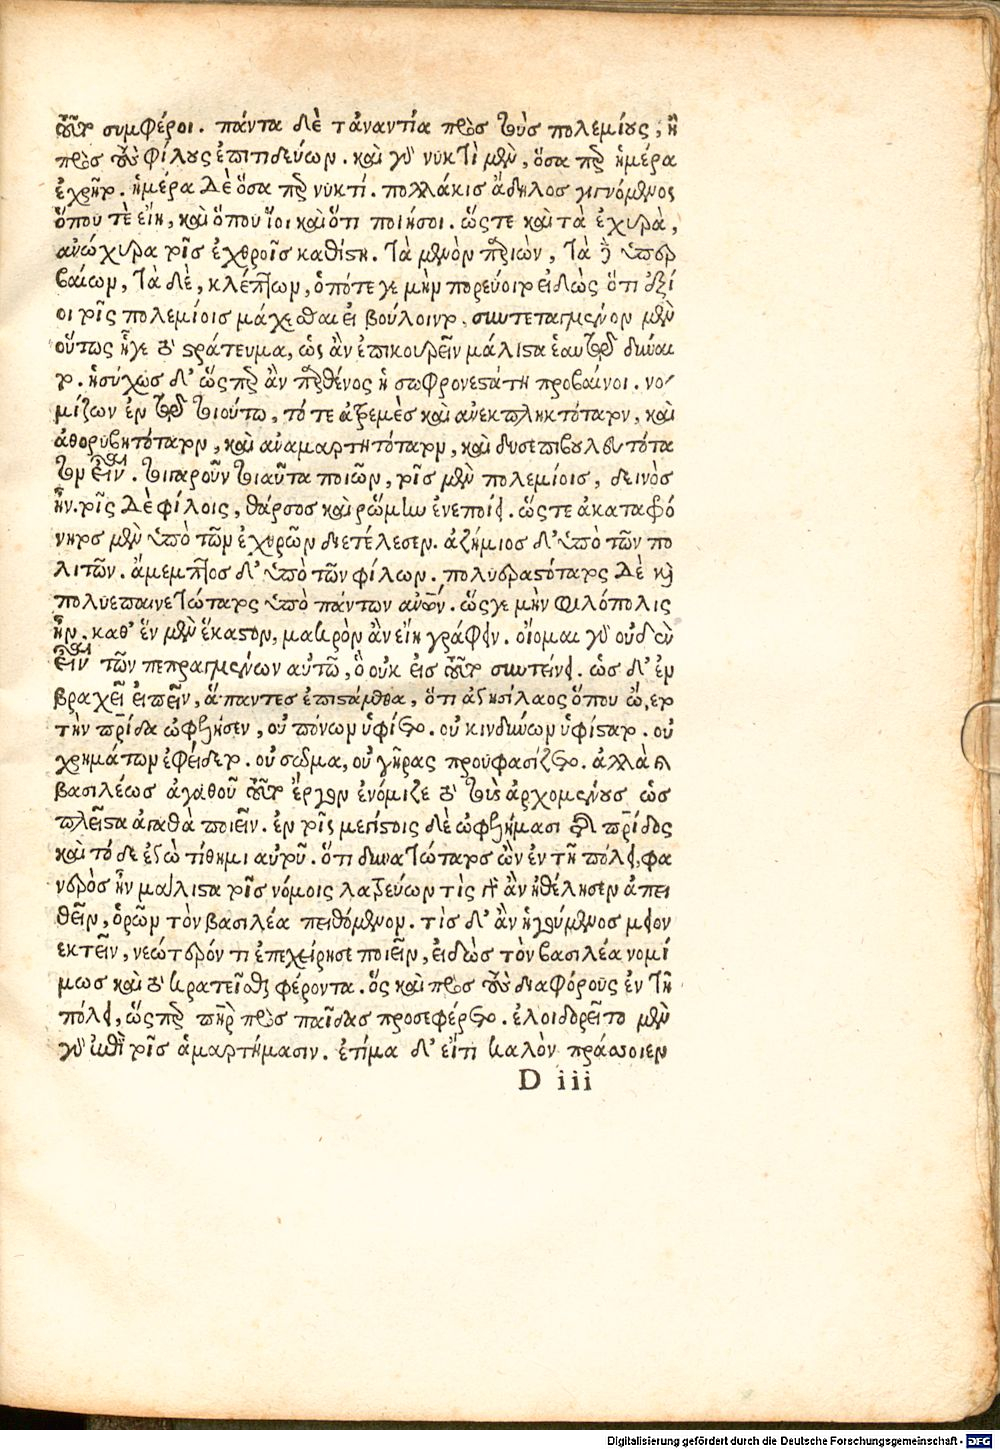 τοῦτο συμφέροι. πάντα δὲ τἀναντία πρὸς τοὺς πολεμίους, ἢ
πρὸς τοὺς φίλους ἐπιτιδεύων. καὶ γὰρ νυκτὶ μὲν, ὅσα περ ἡμέρα
ἐχρῆτο. ἡμέρα δὲ ὅσα περ νυκτί. πολλάκις ἄδηλος γιγνόμενος
ὅπου τὲ εἴη, καὶ ὅπου ἴοι καὶ ὅτι ποιήσοι. ὥςτε καὶ τὰ ἐχυρὰ,
ανώχυρα τοῖς ἐχθροῖς καθίστη. τὰ μὲν παριὼν, τὰ δὲ ὑπερ
βαίων, τὰ δὲ, κλέπτων, ὁπότε γε μὴν πορεύοιτο εἰδὼς ὅτι ἐξεί
οι τοῖς πολεμίοις μάχεσθαι εἰ βούλοιντο, συντεταγμένον μὲν
οὕτως ἦγε τὸ στράτευμα, ὡς ἂν ἐπικουρεῖν μάλιστα ἑαυτῷ δύναι
το. ἡσύχως δ' ὥςπερ ἂν παρθένος ἡ σωφρονεστάτη προβαίνοι. νο
μίζων ἐν τῷ τοιούτω, τό τε ἀτρεμὲς καὶ ανεκπληκτότατον, καὶ
ἀθορυβητότατον, καὶ αναμαρτητότατον, καὶ δυσεπιβουλευτότα
τον εἶναι. τοιγαροῦν τοιαῦτα ποιῶν, τοῖς μὲν πολεμίοις, δεινὸς
ἦν. τοῖς δὲ φίλοις, θάρσος καὶ ῥώμην ἐνεποίει. ὥςτε ἀκαταφρό
νητος μὲν ὑπὸ τῶν ἐχθρῶν διετέλεσεν. ἀζήμιος δ' ὑπὸ τῶν πο
λιτῶν. ἄμεμπτος δ' ὑπὸ τῶν φίλων. πολυεραστότατος δὲ καὶ
πολυεπαινετώτατος ὑπὸ πάντων ανθρώπων. ὥςγε μὴν φιλόπολις
ἦν. καθ' ἓν μὲν ἕκαστον, μακρὸν ἂν εἴη γράφειν. οἴομαι γὰρ οὐδὲν
εἶναι τῶν πεπραγμένων αὐτῶ, ὃ οὐκ εἰς τοῦτο συντείνει. ὡς δ' ἐν
βραχεῖ εἰπεῖν, ἅπαντες ἐπιστάμεθα, ὅτι ἀγησίλαος ὅπου ὤετο
τὴν πατρίδα ὠφελήσειν, οὐ πόνων ὑφίετο. οὐ κινδύνων ὑφίστατο. οὐ
χρημάτων ἐφείδετο. οὐ σῶμα, οὐ γῆρας προὐφασίζετο. ἀλλὰ καὶ
βασιλέως ἀγαθοῦ τοῦτο ἔργον ἐνόμιζε τὸ τοὺς ἀρχομένους ὡς
πλεῖστα ἀγαθὰ ποιεῖν. ἐν τοῖς μεγίστοις δὲ ὠφελήμασι τῆς πατρίδος
καὶ τό δε ἐγὼ τίθημι αὐτοῦ. ὅτι δυνατώτατος ὢν ἐν τῆ πόλει, φα
νερὸς ἦν μάλιστα τοῖς νόμοις λατρεύων τὶς γὰρ ἂν ἠθέλησεν ἀπει
θεῖν, ὁρῶν τὸν βασιλέα πειθόμενον. τὶς δ' ἂν ἡγούμενος μεῖον
εκτεῖν, νεώτερόν τι ἐπεχείρησε ποιεῖν, εἰδὼς τὸν βασιλέα νομί
μως καὶ τὸ κρατεῖσθαι φέροντα. ὃς καὶ πρὸς τοὺς διαφόρους ἐν τῆ
πόλει, ὥςπερ πατὴρ πρὸς παῖδας προσεφέρετο. ἐλοιδορεῖτο μὲν
γὰρ ἐπὶ τοῖς ἁμαρτήμασιν. ἐτίμα δ' εἴ τι καλὸν πράσσοιεν
D iii
Digitalisierung gefördert durch die Deutsche Forschungsgemeinschaft - DFG